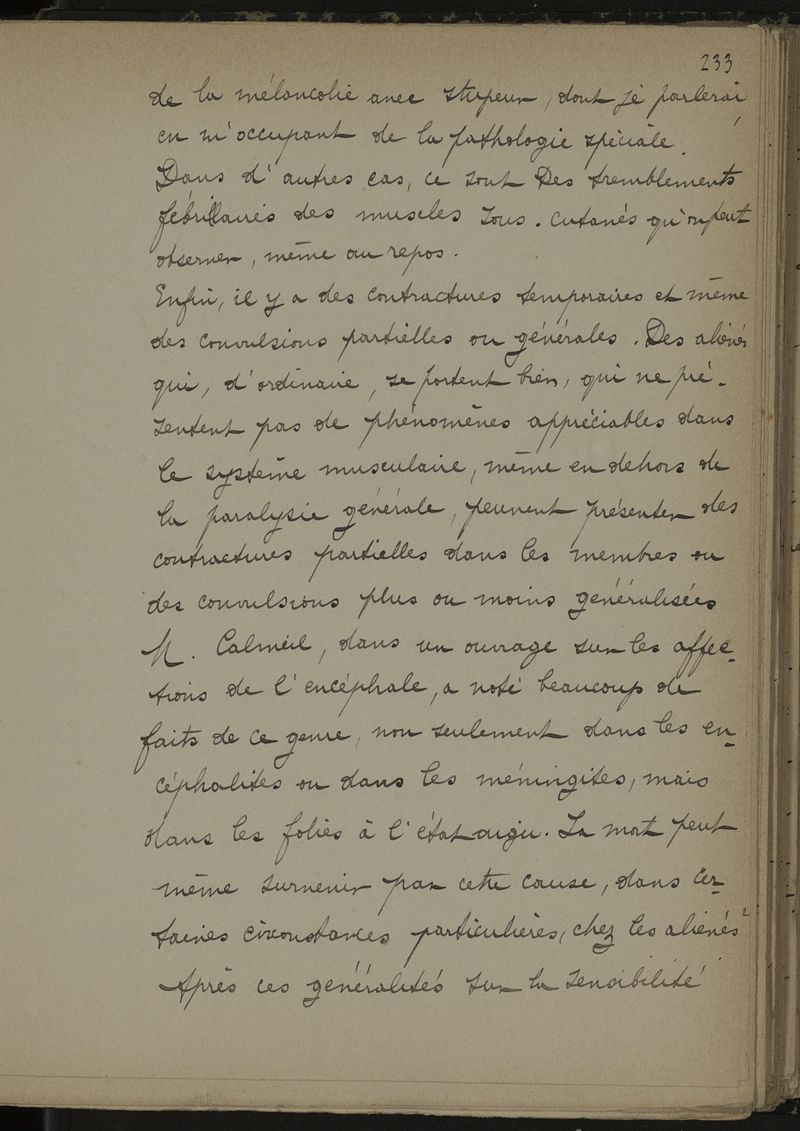 233
de la mélancolie avec stupeur, dont je parlerai
en m'occupant de la pathologie spéciale.
Dans d'autres cas, ce sont des tremblements
fébrillaires des muscles sous-cutanés qu'on peut
observer, même au repos.
Enfin, il y a des contractures temporaires et même
des convulsions partielles ou générales. Des aliénés
qui, d'ordinaire, se portent bien, qui ne pré-
sentent pas de phénomènes appréciables dans
le système musculaire, même en dehors de
la paralysie générale, peuvent présenter des
contractures partielles dans les membres ou
des convulsions plus ou moins généralisées
M. Calmeil, dans un ouvrage sur les affec-
tions de l'encéphale, a noté beaucoup de
faits de ce genre, non seulement dans les en-
céphalites ou dans les méningites, mais
dans les folies à l'état aigu. La mort peut
même survenir par cette cause, dans cer-
taines circonstances particulières, chez les aliénés
Après ces généralités sur la sensibilité